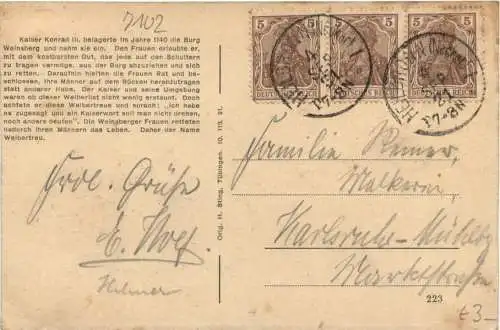 7102
Kaiser Konrad III. belagerte im Jahre 1140 die Burg
Weinsberg und nahm sie ein. Den Frauen erlaubte er,
mit dem kostbarsten Gut, das jede auf den Schultern
zu tragen vermöge, aus der Burg abzuziehen und sich
zu retten. Daraufhin hielten die Frauen Rat und be-
schlossen, ihre Männer auf dem Rücken herabzutragen
statt anderer Habe. Der Kaiser und seine Umgebung
waren ob dieser Weiberlist nicht wenig erstaunt. Doch
achtete er diese Weibertreue und sprach: „Ich habe
es zugesagt und ein Kaiserwort soll man nicht drehen,
noch anders deuten". Die Weinsberger Frauen retteten
hadurch ihren Männern das Leben. Daher der Name
Weibertreu.
5 5 5 5
DEUTSCHES REICH
Frdl. Grüße
E. Wolf
Orig. H. Sting, Tübingen.
Familie
Molkerei
Karlsruhe-Mühlbg
Marktstraße
223
£3-